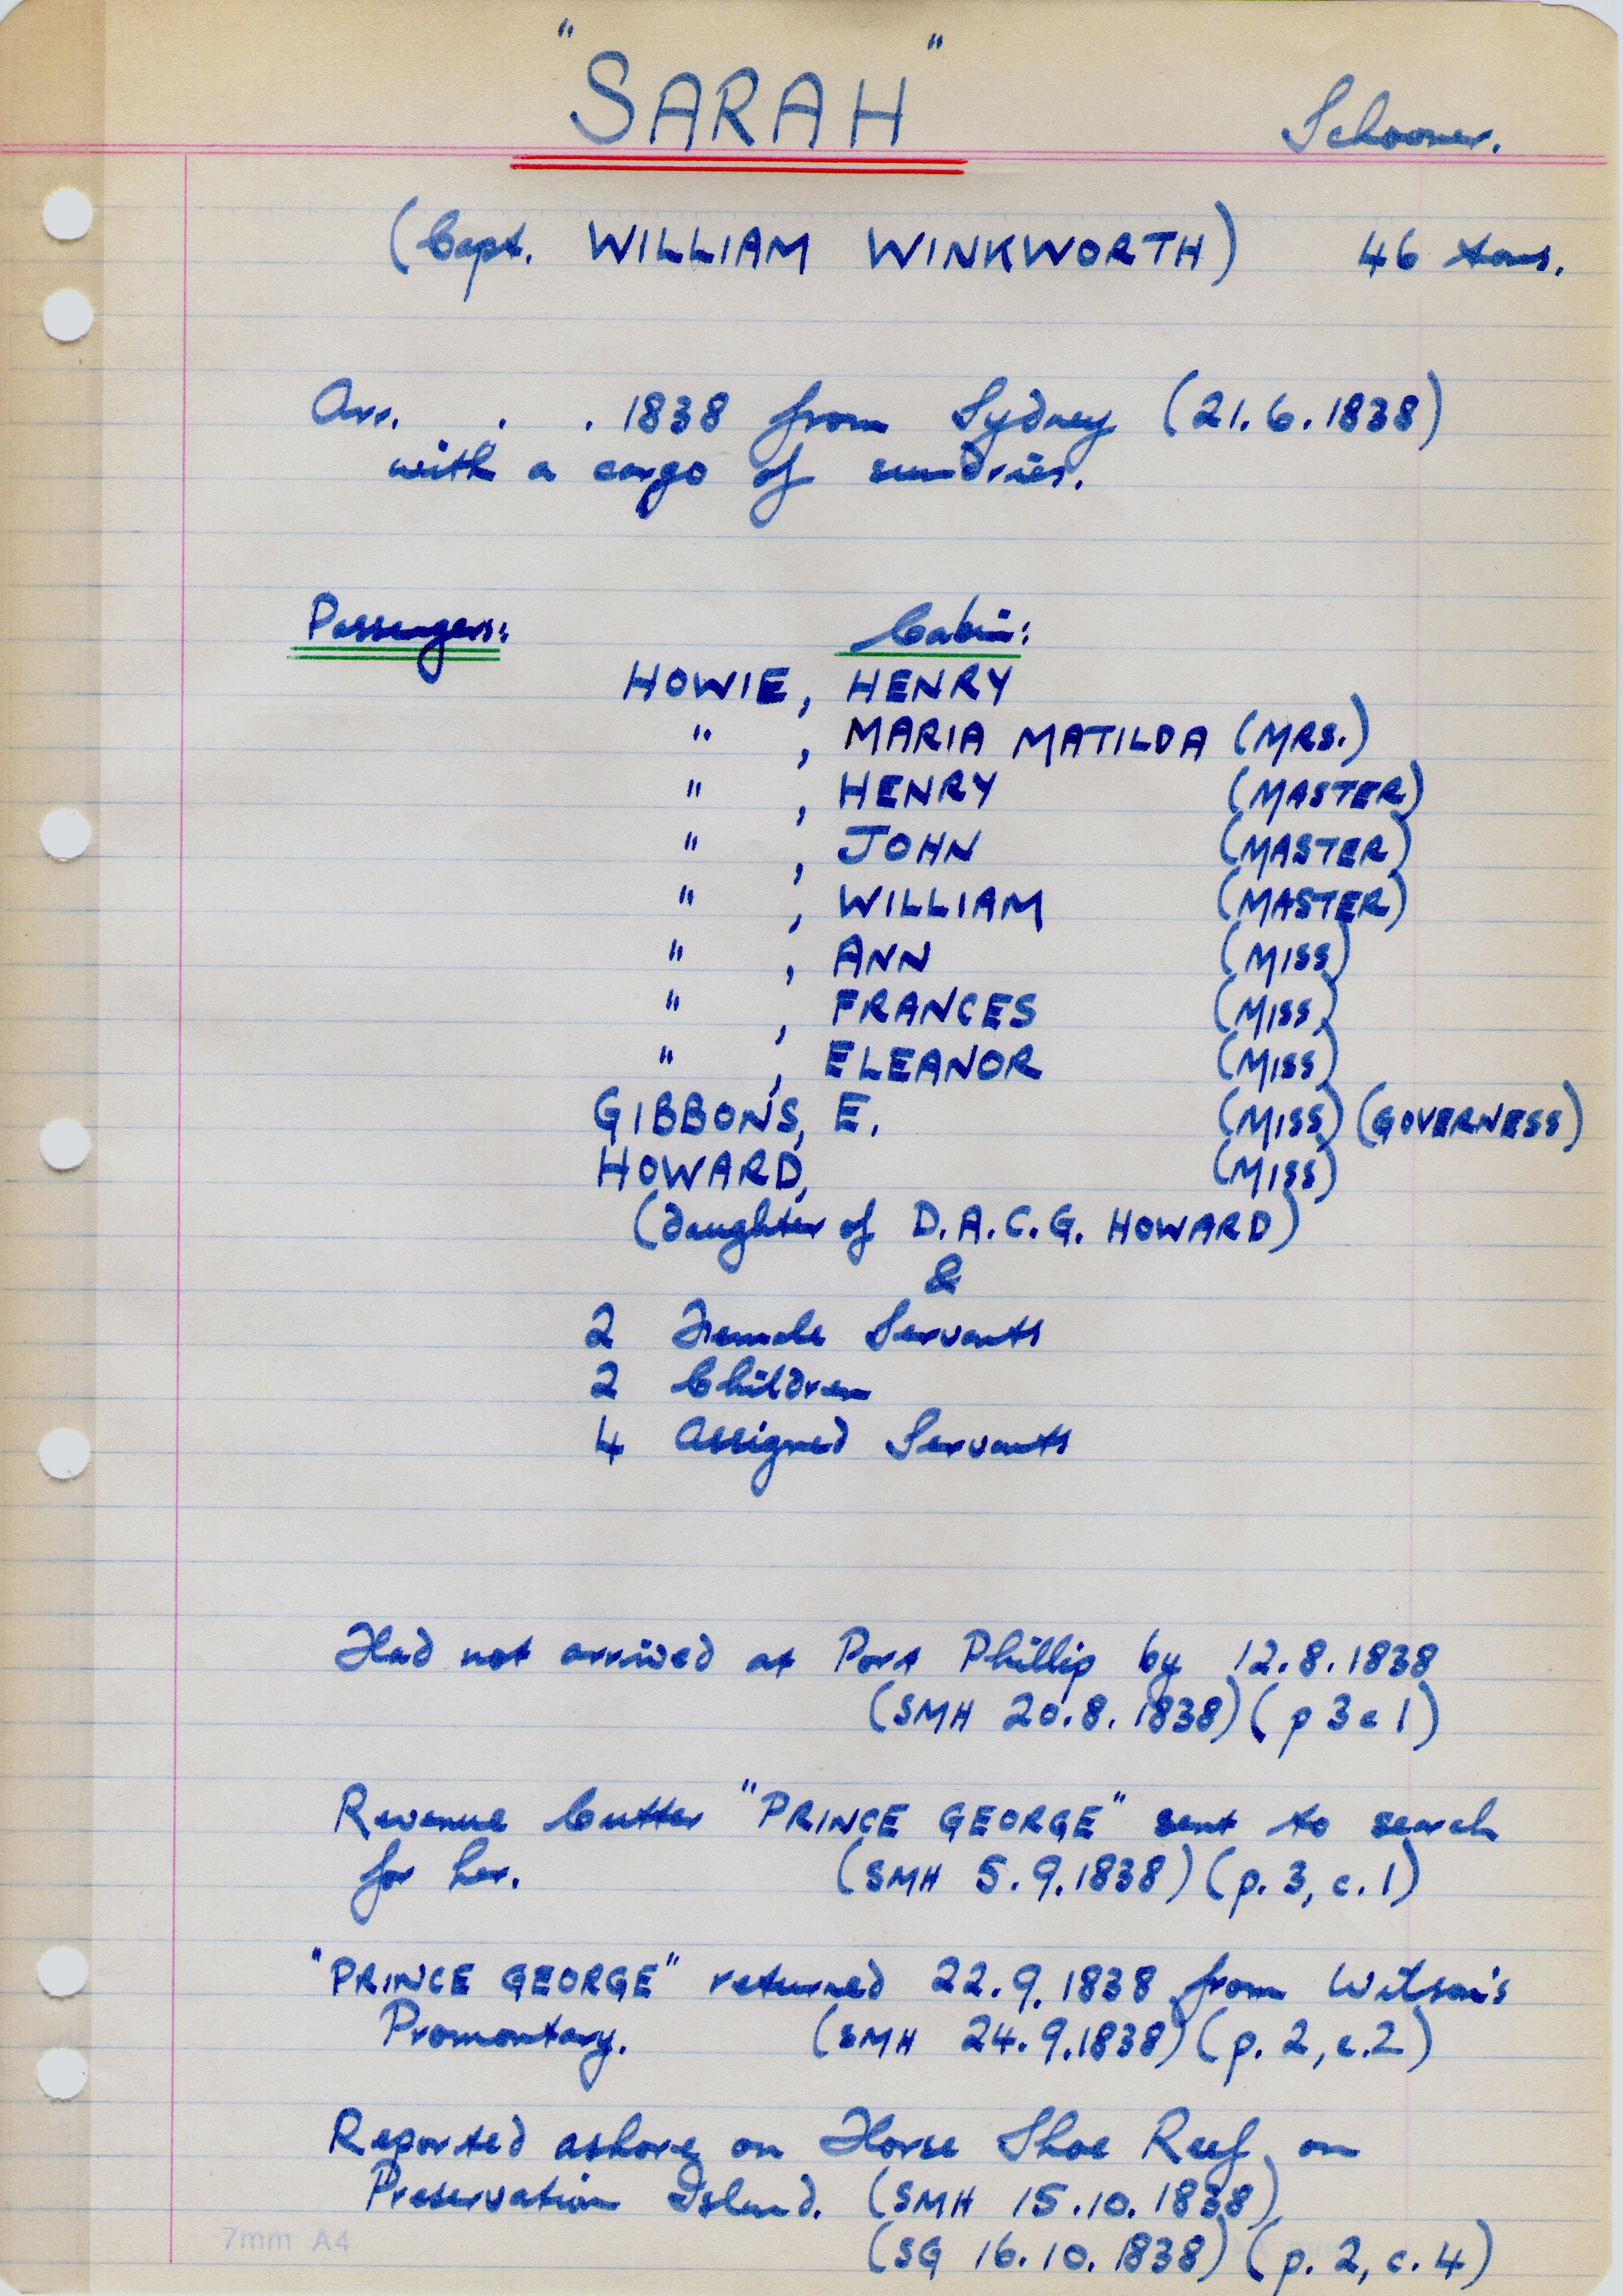 "SARAH" Schooner.
(Capt. WILLIAM WINKWORTH) 46 tons.
Arr. . . 1838 from Sydney (21.6.1838)
with a cargo of sundries.
Passengers: Cabin:
HOWIE, HENRY
" , MARIA MATILDA (MRS.)
" , HENRY (MASTER)
" , JOHN (MASTER)
" , WILLIAM (MASTER)
" , ANN (MISS)
" , FRANCES (MISS)
" , ELEANOR (MISS)
GIBBONS, E. (MISS) (GOVERNESS)
HOWARD, (MISS)
(daughter of D.A.C.G. HOWARD)
&
2 Female Servants
2 Children
4 Assigned Servants
Had not arrived at Port Phillip by 12.8.1838
(SMH 20.8.1838) (p 3 c 1)
Revenue Cutter "PRINCE GEORGE" sent to search
for her. (SMH 5.9.1838) (p. 3, c. 1)
"PRINCE GEORGE" returned 22.9.1838 from Wilson's
Promontory. (SMH 24.9.1838) (p. 2, c. 2)
Reported ashore on Horse Shoe Reef, on
Preservation Island. (SMH 15.10.1838)
(SG 16.10.1838) (p. 2, c. 4)
7mm A4